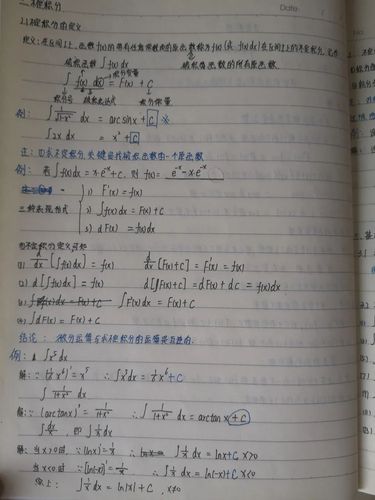 二.不定积分
2.1不定积分的定义
定义:在区间I上,函数f(x)的带有任意常数项的原函数称为f(x)(或f(x)dx)在区间I上的不定积分,记作
被积函数 ∫f(x)dx 被积函数的所有原函数
积分变量
∫ f(x) dx = F(x) + C
积分号 被积表达式 积分常量
例: ∫ 1/√(1-x²) dx = arcsinx + C ※
∫2x dx = x² + C
注: ①求不定积分,关键由找被积函数的一个原函数
例: 若∫f(x)dx = x·e⁻ˣ+C, 则 f(x) = e⁻ˣ - x·e⁻ˣ
三种表现形式
1) F'(x) = f(x)
2) ∫f(x)dx = F(x)+C
3) dF(x) = f(x)dx
由不定积分定义可知
(1) d/dx [∫f(x)dx] = f(x) d/dx [F(x)+C] = F'(x) = f(x)
(2) d[∫f(x)dx] = f(x)dx d[F(x)+C] = dF(x) + dC = f(x)dx
(3) ∫F'(x)dx = F(x)+C
(4) ∫dF(x) = F(x) + C
结论: 微分运算与求不定积分的运算是互逆的.
例: ∫x⁵dx
解: ∵(1/6 x⁶)' = x⁵ ∴∫x⁵dx = 1/6 x⁶ + C
∫ 1/(1+x²) dx
解: ∵(arctanx)' = 1/(1+x²) ∴∫ 1/(1+x²) dx = arctanx + C
∫ dx/x , 即∫ 1/x dx
解: 当x>0时 ∵(lnx)' = 1/x ∴ ∫ 1/x dx = lnx+C x>0
当x<0时 ∵[ln(-x)]' = 1/x ∴ ∫ 1/x dx = ln(-x)+C x<0
综上: ∫ 1/x dx = ln|x| + C , x≠0